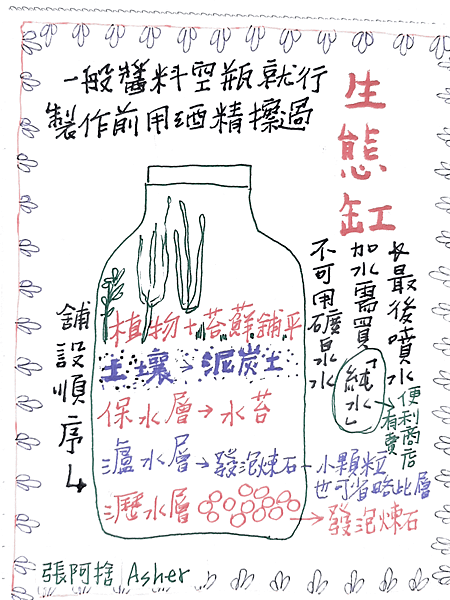 一般醬料空瓶就行
製作前用酒精擦過
生態缸
*最後噴水
加水需買「純水」
→便利商店
有賣
不可用礦泉水
舖設順序↓
植物+苔蘚舖平
土壤→泥炭土
保水層→水苔
瀘水層→發泡煉石-小顆粒
也可省略此層
瀝水層
→發泡煉石
張阿捨 Asher